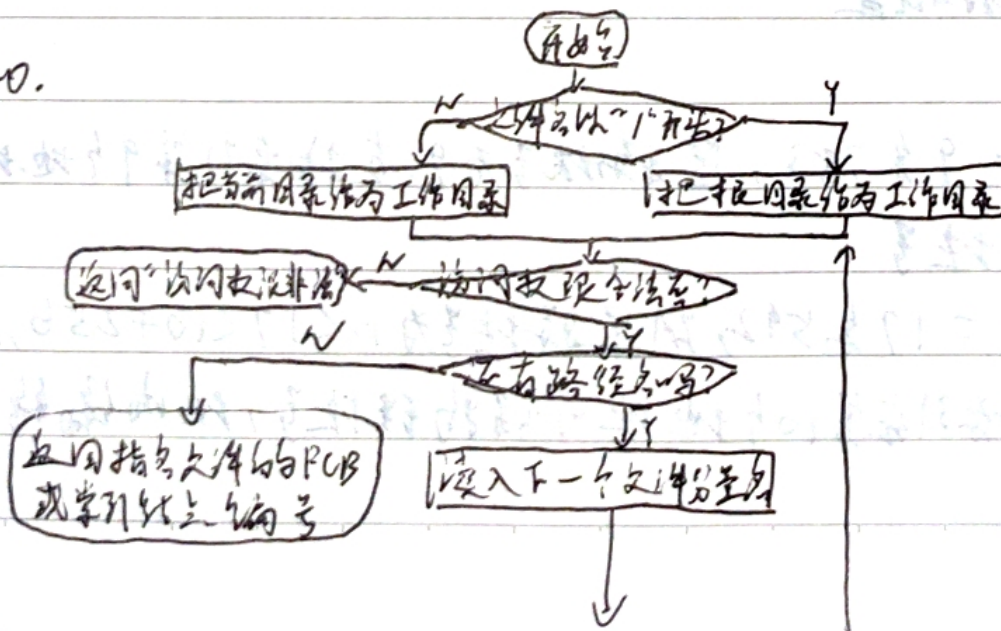 0.
开始
N
文件名以"/"开始?
Y
把当前目录给为工作目录
把根目录给为工作目录
返回"访问权限非法"
N
访问权限合法否?
N
Y
还有路径名吗?
Y
返回指名文件的FCB
或索引结点编号
读入下一个文件分量名